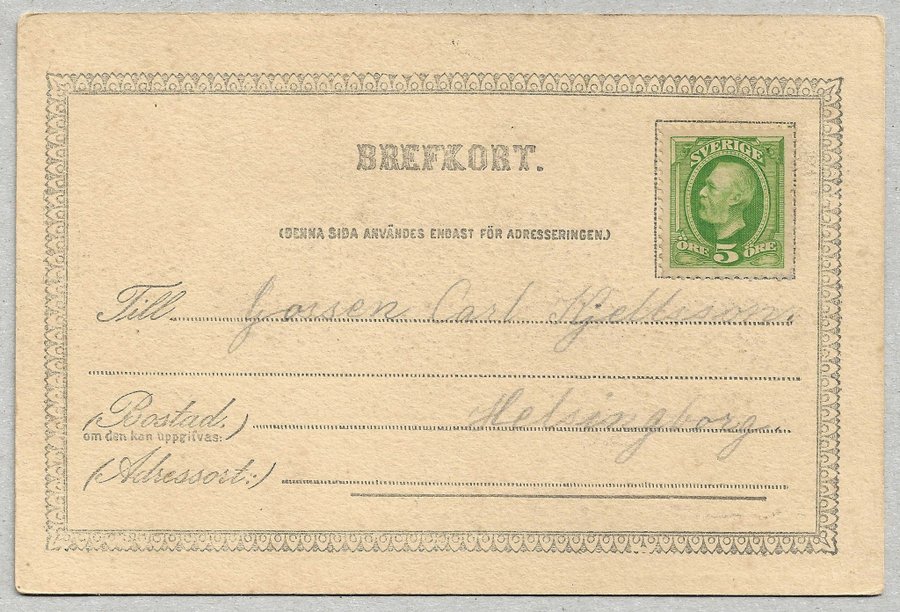 BREFKORT.
SVERIGE
ÖRE 5 ÖRE
(DENNA SIDA ANVÄNDES ENDAST FÖR ADRESSERINGEN.)
Till Gossen Carl Kjellsson.
(Bostad.) Helsingborg.
om den kan uppgifvas:
(Adressort:)